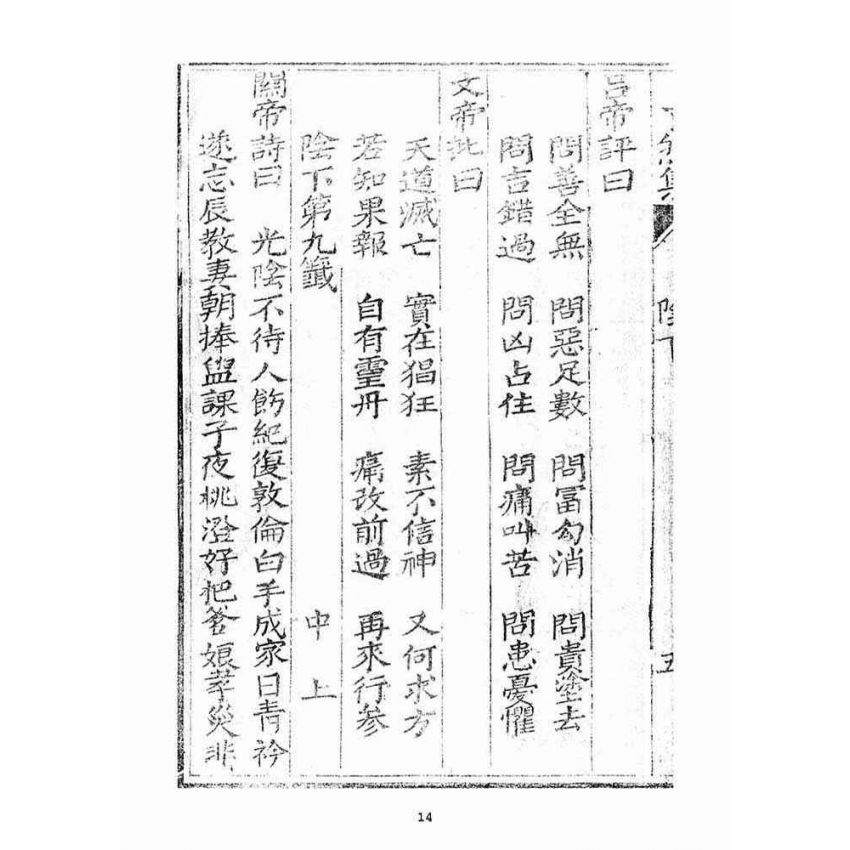 陰下
五
呂帝評曰
問善全無 問惡足數 問冨勾消 問貴塗去
問吉錯過 問凶占住 問痛叫苦 問患憂懼
文帝批曰
天道滅亡 實在猖狂 素不信神 又何求方
若知果報 自有靈丹 痛改前過 再來行参
陰下第九籤 中上
關帝詩曰 光陰不待人飭紀復敦倫白手成家日青衿
遂志辰教妻朝捧盥課子夜挑燈好把爹娘孝災非
14